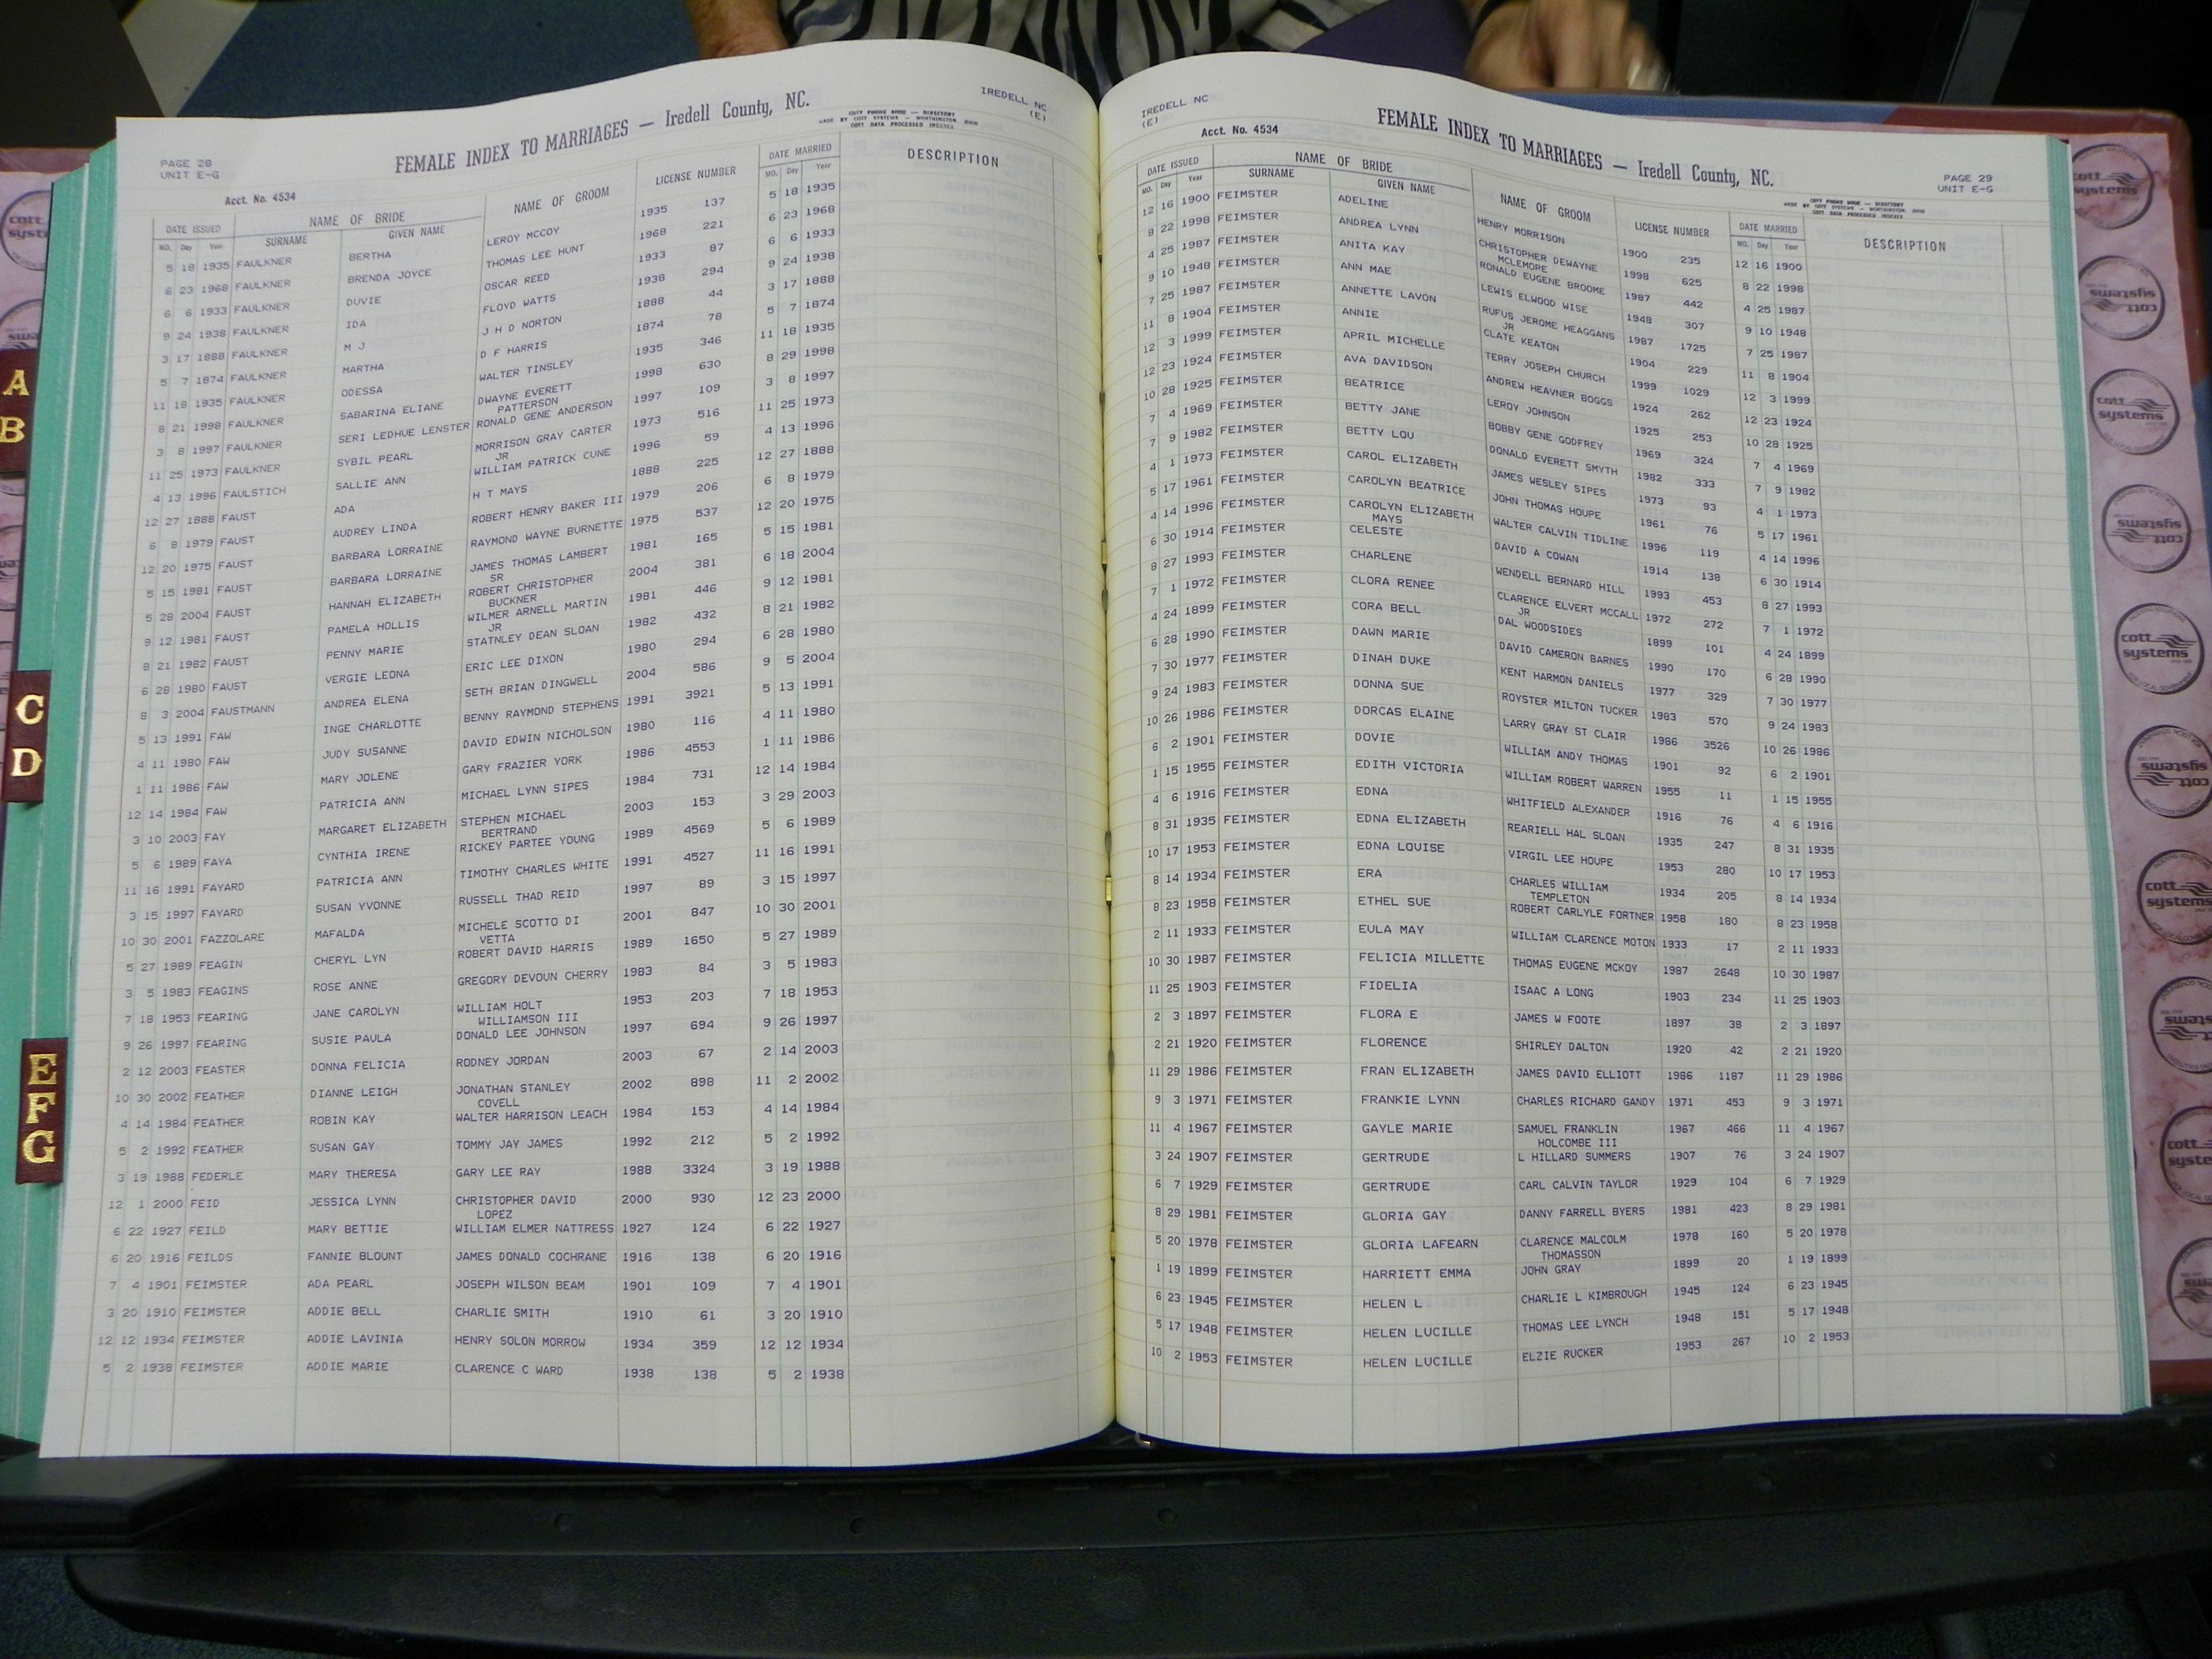 PAGE 28
UNIT E-G
FEMALE INDEX TO MARRIAGES — Iredell County, NC.
IREDELL NC
(E)
COTT PHONE BOOK — DIRECTORY
MADE BY COTT SYSTEMS — WORTHINGTON OHIO
COTT DATA PROCESSED INDEXES
Acct. No. 4534
DATE ISSUED NAME OF BRIDE NAME OF GROOM LICENSE NUMBER DATE MARRIED DESCRIPTION
MO. Day Year SURNAME GIVEN NAME MO. Day Year
5 18 1935 FAULKNER BERTHA LEROY MCCOY 1935 137 5 18 1935
6 23 1968 FAULKNER BRENDA JOYCE THOMAS LEE HUNT 1968 221 6 23 1968
6 6 1933 FAULKNER DUVIE OSCAR REED 1933 87 6 6 1933
9 24 1938 FAULKNER IDA FLOYD WATTS 1938 294 9 24 1938
3 17 1888 FAULKNER M J J H D NORTON 1888 44 3 17 1888
5 7 1874 FAULKNER MARTHA D F HARRIS 1874 78 5 7 1874
11 18 1935 FAULKNER ODESSA WALTER TINSLEY 1935 346 11 18 1935
8 21 1998 FAULKNER SABARINA ELIANE DWAYNE EVERETT 1998 630 8 29 1998
PATTERSON
3 8 1997 FAULKNER SERI LEDHUE LENSTER RONALD GENE ANDERSON 1997 109 3 8 1997
11 25 1973 FAULKNER SYBIL PEARL MORRISON GRAY CARTER 1973 516 11 25 1973
JR
4 13 1996 FAULSTICH SALLIE ANN WILLIAM PATRICK CUNE 1996 59 4 13 1996
12 27 1888 FAUST ADA H T MAYS 1888 225 12 27 1888
6 8 1979 FAUST AUDREY LINDA ROBERT HENRY BAKER III 1979 206 6 8 1979
12 20 1975 FAUST BARBARA LORRAINE RAYMOND WAYNE BURNETTE 1975 537 12 20 1975
5 15 1981 FAUST BARBARA LORRAINE JAMES THOMAS LAMBERT 1981 165 5 15 1981
SR
5 28 2004 FAUST HANNAH ELIZABETH ROBERT CHRISTOPHER 2004 381 6 18 2004
BUCKNER
9 12 1981 FAUST PAMELA HOLLIS WILMER ARNELL MARTIN 1981 446 9 12 1981
JR
8 21 1982 FAUST PENNY MARIE STATNLEY DEAN SLOAN 1982 432 8 21 1982
6 28 1980 FAUST VERGIE LEONA ERIC LEE DIXON 1980 294 6 28 1980
8 3 2004 FAUSTMANN ANDREA ELENA SETH BRIAN DINGWELL 2004 586 9 5 2004
5 13 1991 FAW INGE CHARLOTTE BENNY RAYMOND STEPHENS 1991 3921 5 13 1991
4 11 1980 FAW JUDY SUSANNE DAVID EDWIN NICHOLSON 1980 116 4 11 1980
1 11 1986 FAW MARY JOLENE GARY FRAZIER YORK 1986 4553 1 11 1986
12 14 1984 FAW PATRICIA ANN MICHAEL LYNN SIPES 1984 731 12 14 1984
3 10 2003 FAY MARGARET ELIZABETH STEPHEN MICHAEL 2003 153 3 29 2003
BERTRAND
5 6 1989 FAYA CYNTHIA IRENE RICKEY PARTEE YOUNG 1989 4569 5 6 1989
11 16 1991 FAYARD PATRICIA ANN TIMOTHY CHARLES WHITE 1991 4527 11 16 1991
3 15 1997 FAYARD SUSAN YVONNE RUSSELL THAD REID 1997 89 3 15 1997
10 30 2001 FAZZOLARE MAFALDA MICHELE SCOTTO DI 2001 847 10 30 2001
VETTA
5 27 1989 FEAGIN CHERYL LYN ROBERT DAVID HARRIS 1989 1650 5 27 1989
3 5 1983 FEAGINS ROSE ANNE GREGORY DEVOUN CHERRY 1983 84 3 5 1983
7 18 1953 FEARING JANE CAROLYN WILLIAM HOLT 1953 203 7 18 1953
WILLIAMSON III
9 26 1997 FEARING SUSIE PAULA DONALD LEE JOHNSON 1997 694 9 26 1997
2 12 2003 FEASTER DONNA FELICIA RODNEY JORDAN 2003 67 2 14 2003
10 30 2002 FEATHER DIANNE LEIGH JONATHAN STANLEY 2002 898 11 2 2002
COVELL
4 14 1984 FEATHER ROBIN KAY WALTER HARRISON LEACH 1984 153 4 14 1984
5 2 1992 FEATHER SUSAN GAY TOMMY JAY JAMES 1992 212 5 2 1992
3 19 1988 FEDERLE MARY THERESA GARY LEE RAY 1988 3324 3 19 1988
12 1 2000 FEID JESSICA LYNN CHRISTOPHER DAVID 2000 930 12 23 2000
LOPEZ
6 22 1927 FEILD MARY BETTIE WILLIAM ELMER NATTRESS 1927 124 6 22 1927
6 20 1916 FEILDS FANNIE BLOUNT JAMES DONALD COCHRANE 1916 138 6 20 1916
7 4 1901 FEIMSTER ADA PEARL JOSEPH WILSON BEAM 1901 109 7 4 1901
3 20 1910 FEIMSTER ADDIE BELL CHARLIE SMITH 1910 61 3 20 1910
12 12 1934 FEIMSTER ADDIE LAVINIA HENRY SOLON MORROW 1934 359 12 12 1934
5 2 1938 FEIMSTER ADDIE MARIE CLARENCE C WARD 1938 138 5 2 1938
IREDELL NC
(E)
Acct. No. 4534
FEMALE INDEX TO MARRIAGES — Iredell County, NC.
PAGE 29
UNIT E-G
COTT PHONE BOOK — DIRECTORY
MADE BY COTT SYSTEMS — WORTHINGTON OHIO
COTT DATA PROCESSED INDEXES
DATE ISSUED NAME OF BRIDE NAME OF GROOM LICENSE NUMBER DATE MARRIED DESCRIPTION
MO. Day Year SURNAME GIVEN NAME MO. Day Year
12 16 1900 FEIMSTER ADELINE HENRY MORRISON 1900 235 12 16 1900
8 22 1998 FEIMSTER ANDREA LYNN CHRISTOPHER DEWAYNE 1998 625 8 22 1998
MCLEMORE
4 25 1987 FEIMSTER ANITA KAY RONALD EUGENE BROOME 1987 442 4 25 1987
9 10 1948 FEIMSTER ANN MAE LEWIS ELWOOD WISE 1948 307 9 10 1948
7 25 1987 FEIMSTER ANNETTE LAVON RUFUS JEROME HEAGGANS 1987 1725 7 25 1987
JR
11 8 1904 FEIMSTER ANNIE CLATE KEATON 1904 229 11 8 1904
12 3 1999 FEIMSTER APRIL MICHELLE TERRY JOSEPH CHURCH 1999 1029 12 3 1999
12 23 1924 FEIMSTER AVA DAVIDSON ANDREW HEAVNER BOGGS 1924 262 12 23 1924
10 28 1925 FEIMSTER BEATRICE LEROY JOHNSON 1925 253 10 28 1925
7 4 1969 FEIMSTER BETTY JANE BOBBY GENE GODFREY 1969 324 7 4 1969
7 9 1982 FEIMSTER BETTY LOU DONALD EVERETT SMYTH 1982 333 7 9 1982
4 1 1973 FEIMSTER CAROL ELIZABETH JAMES WESLEY SIPES 1973 93 4 1 1973
5 17 1961 FEIMSTER CAROLYN BEATRICE JOHN THOMAS HOUPE 1961 76 5 17 1961
4 14 1996 FEIMSTER CAROLYN ELIZABETH WALTER CALVIN TIDLINE 1996 119 4 14 1996
MAYS
6 30 1914 FEIMSTER CELESTE DAVID A COWAN 1914 138 6 30 1914
8 27 1993 FEIMSTER CHARLENE WENDELL BERNARD HILL 1993 453 8 27 1993
7 1 1972 FEIMSTER CLORA RENEE CLARENCE ELVERT MCCALL 1972 272 7 1 1972
JR
4 24 1899 FEIMSTER CORA BELL DAL WOODSIDES 1899 101 4 24 1899
6 28 1990 FEIMSTER DAWN MARIE DAVID CAMERON BARNES 1990 170 6 28 1990
7 30 1977 FEIMSTER DINAH DUKE KENT HARMON DANIELS 1977 329 7 30 1977
9 24 1983 FEIMSTER DONNA SUE ROYSTER MILTON TUCKER 1983 570 9 24 1983
10 26 1986 FEIMSTER DORCAS ELAINE LARRY GRAY ST CLAIR 1986 3526 10 26 1986
6 2 1901 FEIMSTER DOVIE WILLIAM ANDY THOMAS 1901 92 6 2 1901
1 15 1955 FEIMSTER EDITH VICTORIA WILLIAM ROBERT WARREN 1955 11 1 15 1955
4 6 1916 FEIMSTER EDNA WHITFIELD ALEXANDER 1916 76 4 6 1916
8 31 1935 FEIMSTER EDNA ELIZABETH REARIELL HAL SLOAN 1935 247 8 31 1935
10 17 1953 FEIMSTER EDNA LOUISE VIRGIL LEE HOUPE 1953 280 10 17 1953
8 14 1934 FEIMSTER ERA CHARLES WILLIAM 1934 205 8 14 1934
TEMPLETON
8 23 1958 FEIMSTER ETHEL SUE ROBERT CARLYLE FORTNER 1958 180 8 23 1958
2 11 1933 FEIMSTER EULA MAY WILLIAM CLARENCE MOTON 1933 17 2 11 1933
10 30 1987 FEIMSTER FELICIA MILLETTE THOMAS EUGENE MCKOY 1987 2648 10 30 1987
11 25 1903 FEIMSTER FIDELIA ISAAC A LONG 1903 234 11 25 1903
2 3 1897 FEIMSTER FLORA E JAMES W FOOTE 1897 38 2 3 1897
2 21 1920 FEIMSTER FLORENCE SHIRLEY DALTON 1920 42 2 21 1920
11 29 1986 FEIMSTER FRAN ELIZABETH JAMES DAVID ELLIOTT 1986 1187 11 29 1986
9 3 1971 FEIMSTER FRANKIE LYNN CHARLES RICHARD GANDY 1971 453 9 3 1971
11 4 1967 FEIMSTER GAYLE MARIE SAMUEL FRANKLIN 1967 466 11 4 1967
HOLCOMBE III
3 24 1907 FEIMSTER GERTRUDE L HILLARD SUMMERS 1907 76 3 24 1907
6 7 1929 FEIMSTER GERTRUDE CARL CALVIN TAYLOR 1929 104 6 7 1929
8 29 1981 FEIMSTER GLORIA GAY DANNY FARRELL BYERS 1981 423 8 29 1981
5 20 1978 FEIMSTER GLORIA LAFEARN CLARENCE MALCOLM 1978 160 5 20 1978
THOMASSON
1 19 1899 FEIMSTER HARRIETT EMMA JOHN GRAY 1899 20 1 19 1899
6 23 1945 FEIMSTER HELEN L CHARLIE L KIMBROUGH 1945 124 6 23 1945
5 17 1948 FEIMSTER HELEN LUCILLE THOMAS LEE LYNCH 1948 151 5 17 1948
10 2 1953 FEIMSTER HELEN LUCILLE ELZIE RUCKER 1953 267 10 2 1953
A
B
C
D
E
F
G
cott systems
cott systems
cott systems
cott systems
cott systems
cott systems
cott systems